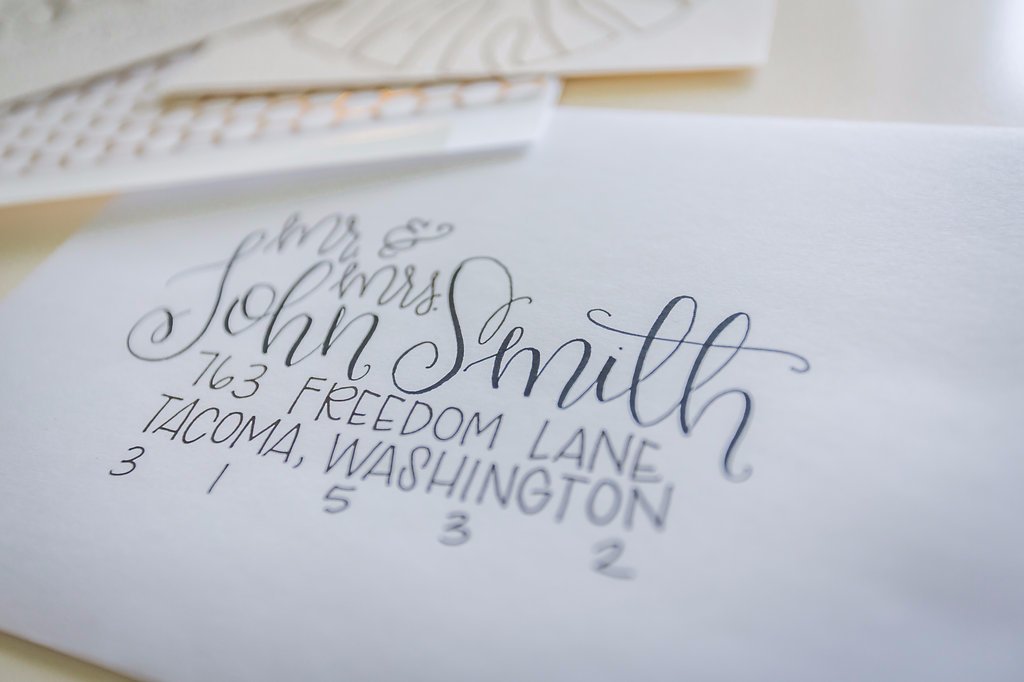 mr. &
mrs.
John Smith
763 FREEDOM LANE
TACOMA, WASHINGTON
3 1 5 3 2